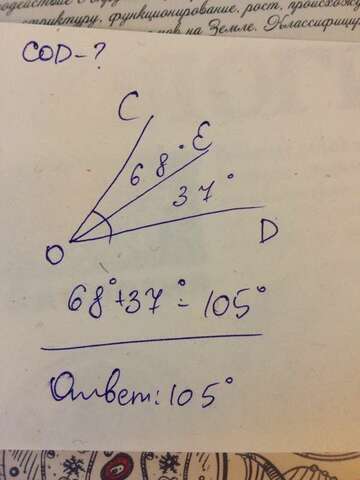 структуру, функционирование, рост, происхожд
на Земле. Классифицир
COD-?
C
68° E
37°
O
D
68°+37°=105°
Ответ: 105°